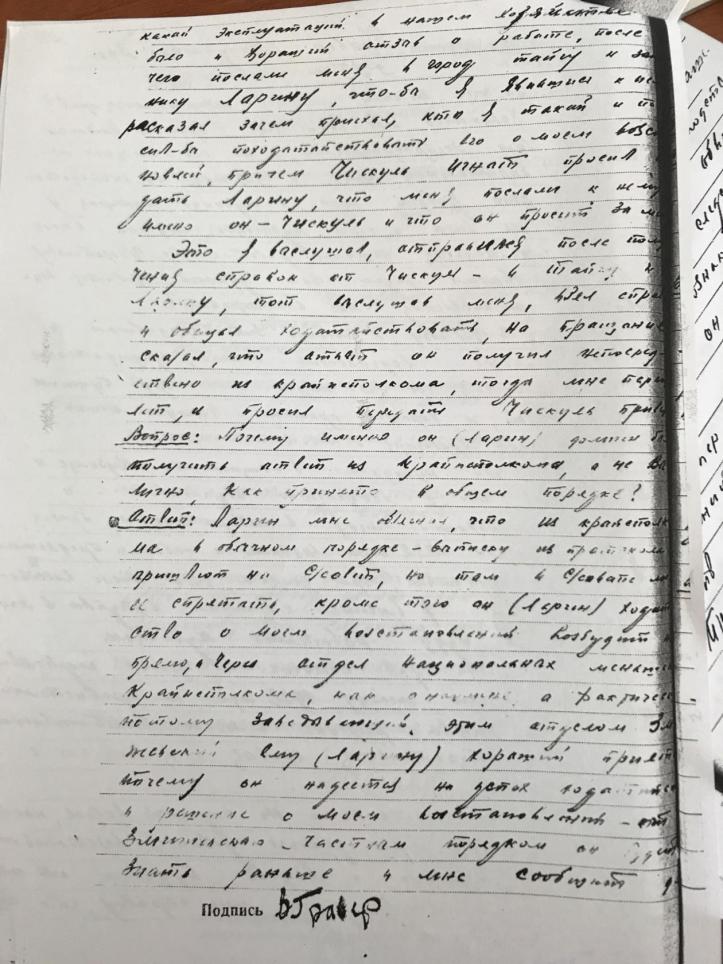 какой эксплуатаций в нашем хозяйстве
было и хороший отзыв о работе, после
чего послали меня в город тайгу и за
нику Ларину, что-ба я явившися к не
расказал зачем приехал, кто я такой и по
сил-ба походатайствовать его о моем восс
новлен, причем Чискуль Игнат просил
дать Ларину, что меня послали к нему
имено он - Чискуль и что он просит за м
Это я выслушав, отправился после пол
чения справок от Чискуль - в тайгу к
Ларину, тот выслушав меня, взял спра
и обещал ходатайствовать, на прощание
сказал, что ответ он получит непосред-
ствено из крайисполкома, тогда мне пере
ест, и просил передать Чискуль приве
Вопрос: Почему именно он (Ларин) должен б
получить ответ из Крайисполкома, а не Вы
лично, как принято в общем порядке?
Ответ: Ларин мне объяснил, что из крайиспол
ма в обычном порядке - выписку из протокола
пришлют на С/совет, но там в С/совете мо
её спрятать, кроме того он (Ларин) ходат
ство о моем восстановлений возбудит н
прямо, а через отдел национальных меньши
Крайисполкома, как а фактичес
потому заведывающий этим отделом Зм
жевский ему (Ларину) хороший прият
почему он надеется на успех ходатайс
и решение о моем восстановлений - от
частным порядком он будет
знать раньше и мне сообщит
Подпись